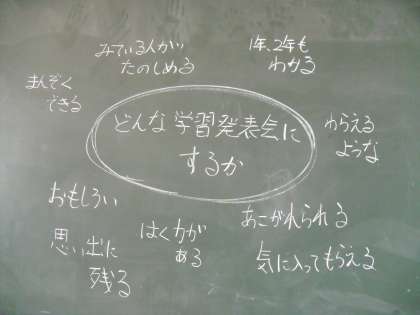 みている人がい
たのしめる
1年、2年も
わかる
まんぞく
できる
どんな学習発表会に
するか
わらえる
ような
おもしろい
はく力が
ある
あこがれられる
思い出に
残る
気に入ってもらえる